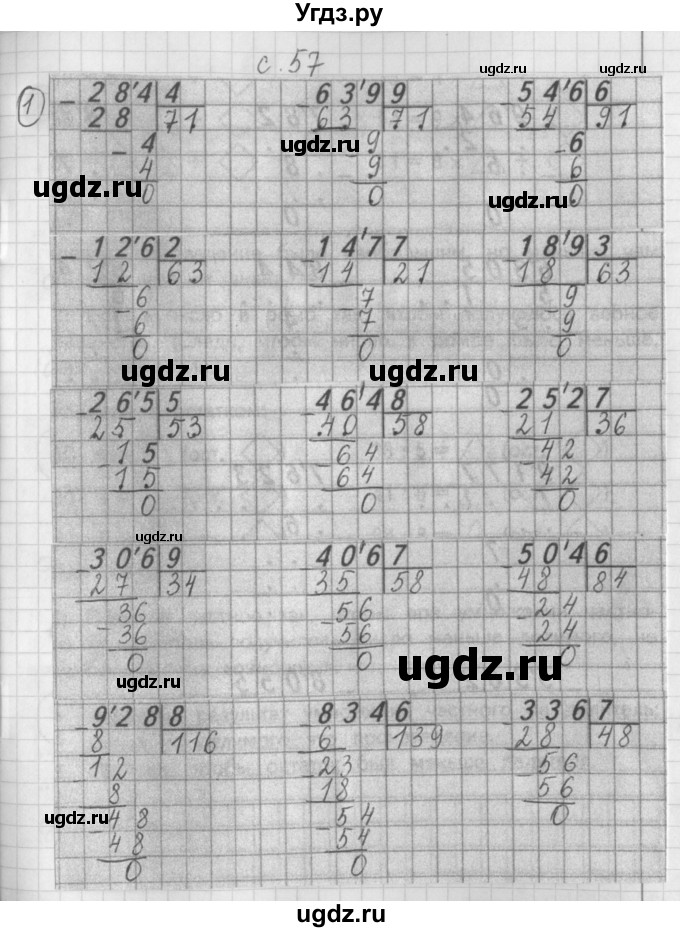 Угдз.ру
с. 57
1
- 28'4 4   - 63'9 9   - 54'6 6
28 71   63 71   54 91
- 4   - 9   - 6
4   9   6
0   0   0
- 12'6 2   - 14'7 7   - 18'9 3
12 63   14 21   18 63
- 6   - 7   - 9
6   7   9
0   0   0
- 26'5 5   - 46'4 8   - 25'2 7
25 53   40 58   21 36
- 15   - 64   - 42
15   64   42
0   0   0
- 30'6 9   - 40'6 7   - 50'4 6
27 34   35 58   48 84
- 36   - 56   - 24
36   56   24
0   0   0
- 9'28 8   - 834 6   - 336 7
8 116   6 139   28 48
- 12   - 23   - 56
8   18   56
- 48   - 54   0
48   54
0   0
ugdz.ru
ugdz.ru
ugdz.ru
ugdz.ru
ugdz.ru
ugdz.ru
ugdz.ru
ugdz.ru
ugdz.ru
ugdz.ru
ugdz.ru
ugdz.ru
ugdz.ru
ugdz.ru